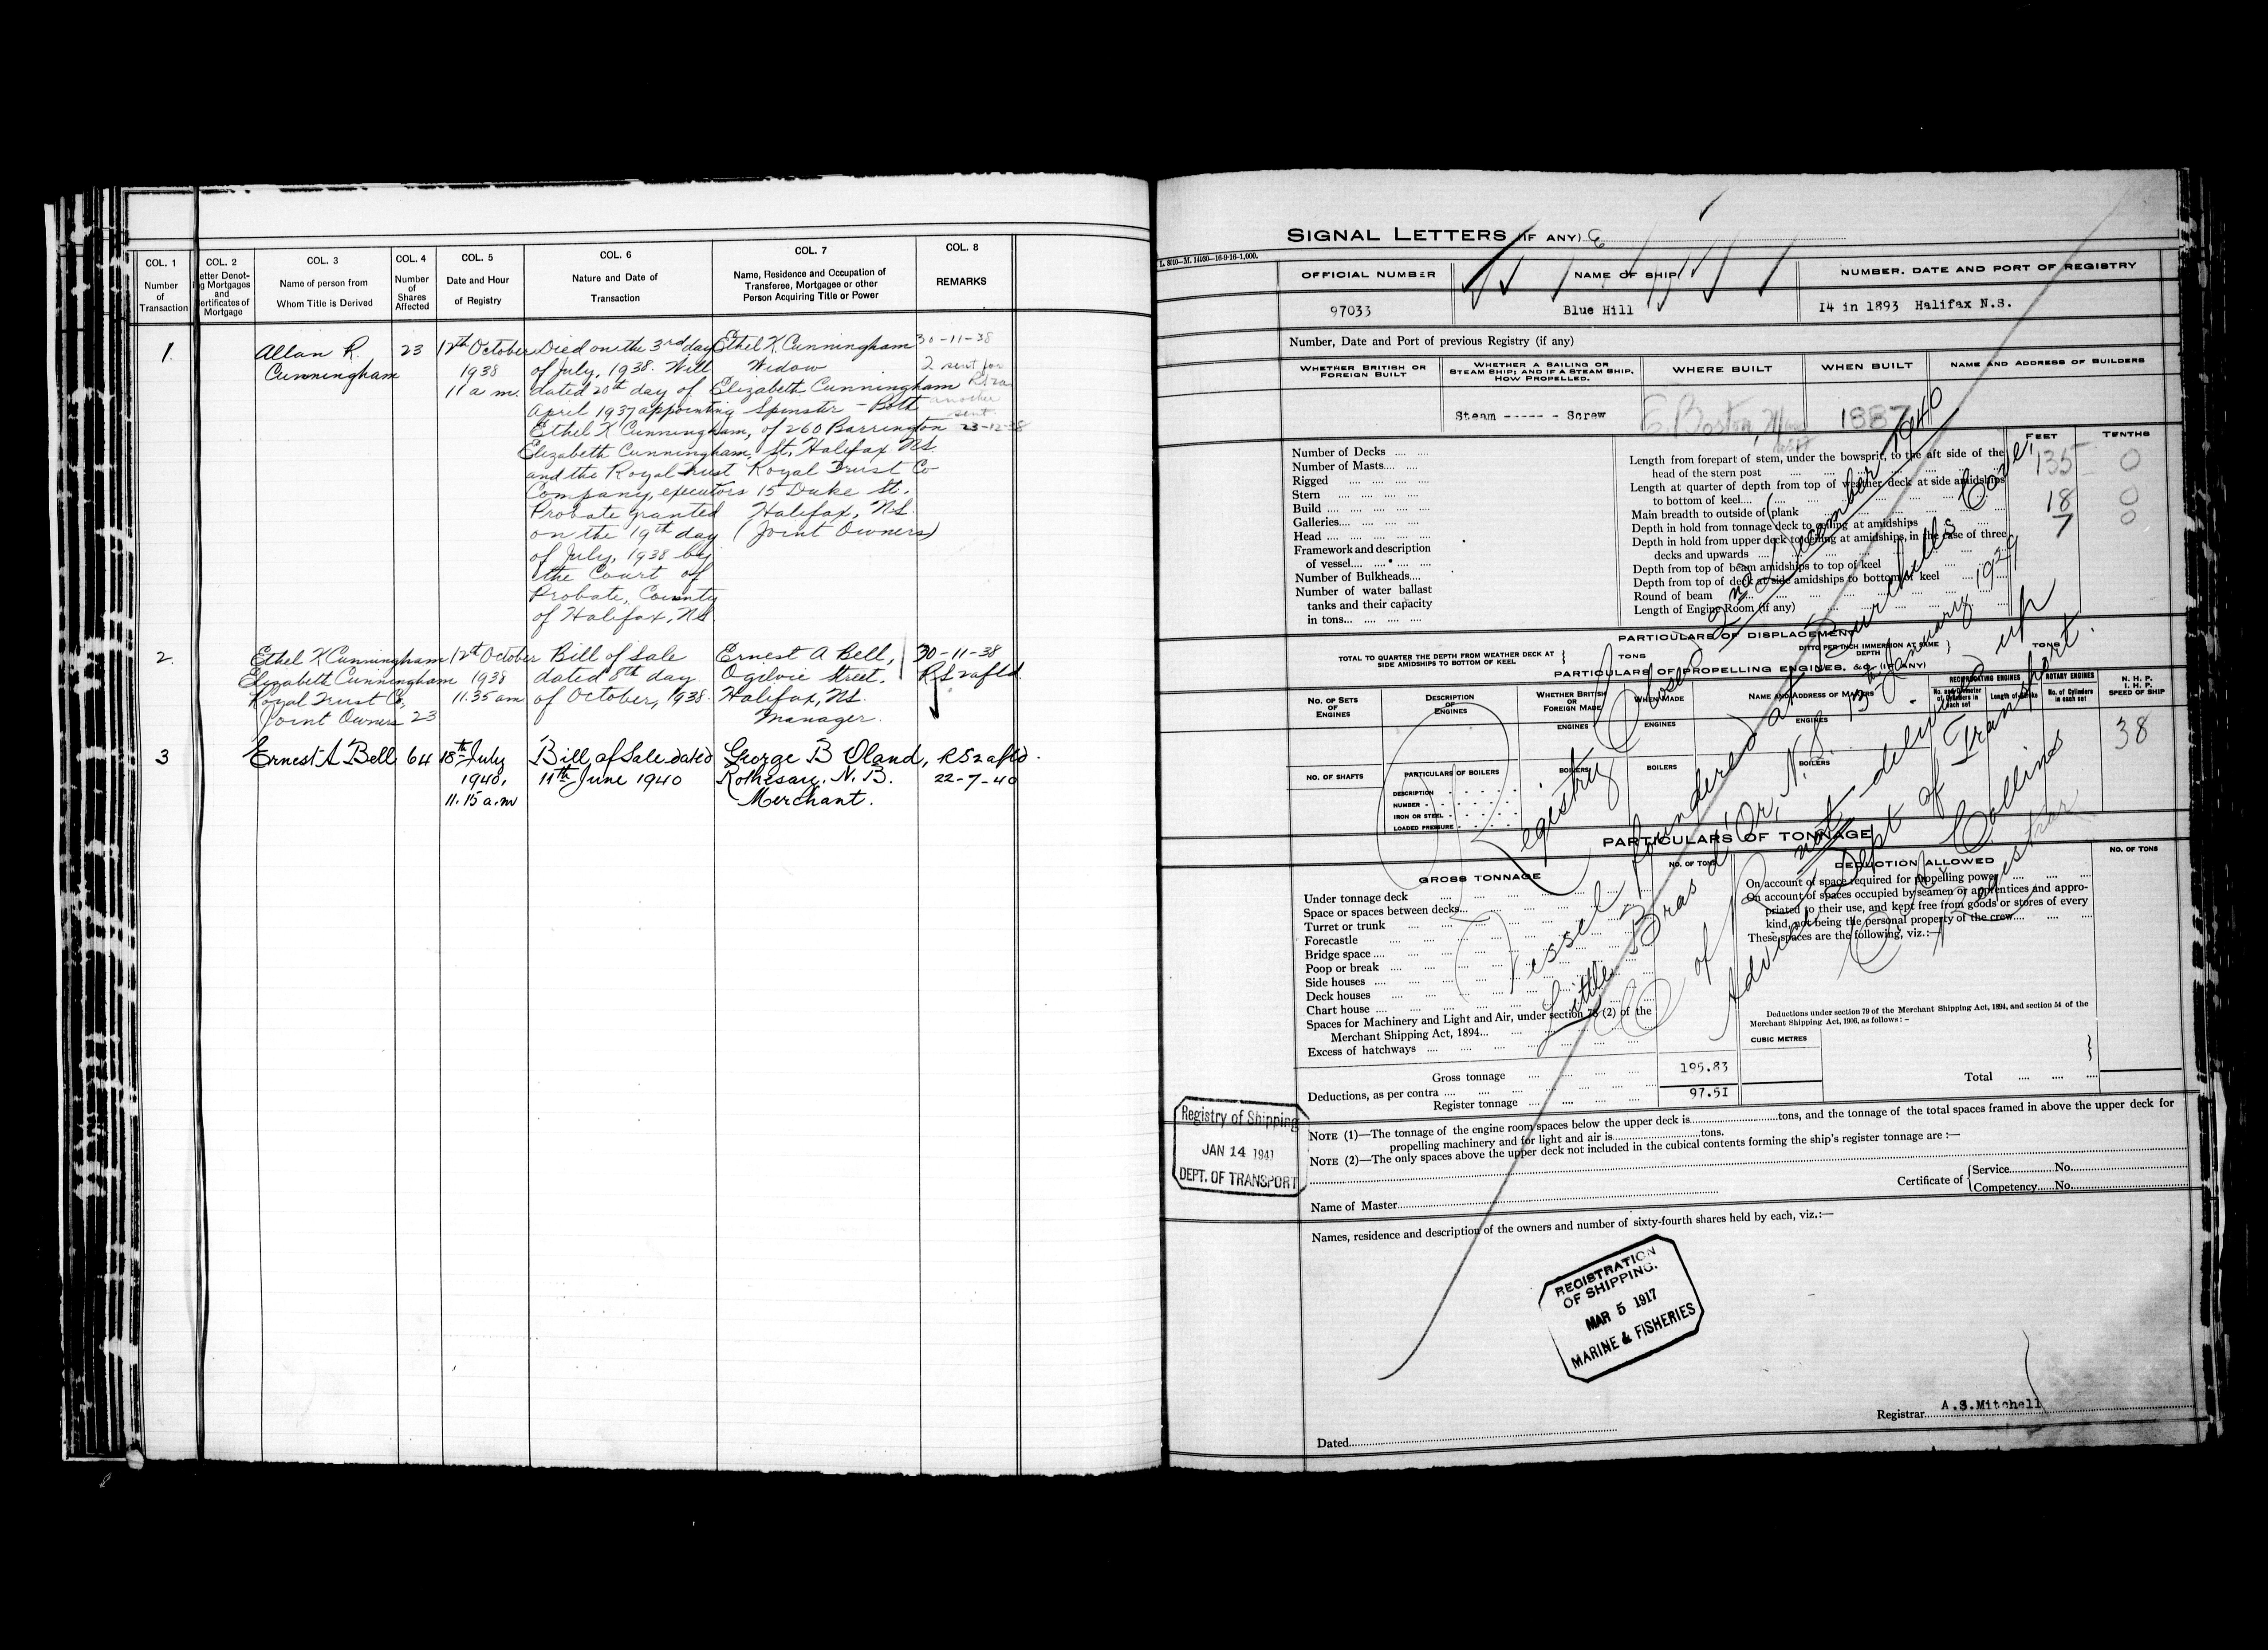 COL. 1
Number
of
Transaction
COL. 2
etter Denot-
g Mortgages
and
ertificates of
Mortgage
COL. 3
Name of person from
Whom Title is Derived
COL. 4
Number
of
Shares
Affected
COL. 5
Date and Hour
of Registry
COL. 6
Nature and Date of
Transaction
COL. 7
Name, Residence and Occupation of
Transferee, Mortgagee or other
Person Acquiring Title or Power
COL. 8
REMARKS
1.
Allan R.
Cunningham
23
12th October
1938
11 a m.
Died on the 3rd day
of July, 1938. Will
dated 20th day of
April 1937 appointing
Ethel K Cunningham,
Elizabeth Cunningham,
and the Royal Trust
Company, executors
Probate granted
on the 19th day
of July, 1938 by
the Court of
Probate, County
of Halifax, N.S.
Ethel K. Cunningham
Widow
Elizabeth Cunningham
Spinster - Both
of 260 Barrington
St. Halifax N.S.
Royal Trust Co
15 Duke St.
Halifax, N.S.
(Joint Owners)
30-11-38
2 sent for
another
sent.
23-12-38
2.
Ethel K Cunningham
Elizabeth Cunningham
Royal Trust Co,
Joint Owners 23
12th October
1938
11.35 am
Bill of Sale
dated 8th day
of October, 1938.
Ernest A Bell,
Ogilvie Street.
Halifax, N.S.
Manager.
30-11-38
3
Ernest A Bell
64
18th July
1940,
11.15 a.m
Bill of Sale dated
11th June 1940
George B Oland,
Rothesay, N. B.
Merchant.
22-7-40
SIGNAL LETTERS (IF ANY)
L. 8010-M. 14030-16-9-16-1,000.
OFFICIAL NUMBER
NAME OF SHIP
NUMBER, DATE AND PORT OF REGISTRY
97033
Blue Hill
I4 in 1893 Halifax N.S.
Number, Date and Port of previous Registry (if any)
WHETHER BRITISH OR
FOREIGN BUILT
WHETHER A SAILING OR
STEAM SHIP; AND IF A STEAM SHIP,
HOW PROPELLED.
WHERE BUILT
WHEN BUILT
NAME AND ADDRESS OF BUILDERS
Steam ----- - Screw
E. Boston, Mass
1887
FEET
TENTHS
Number of Decks
Number of Masts
Rigged
Stern
Build
Galleries
Head
Framework and description
of vessel
Number of Bulkheads
Number of water ballast
tanks and their capacity
in tons
Length from forepart of stem, under the bowsprit, to the aft side of the
head of the stern post
135 0
Length at quarter of depth from top of weather deck at side amidships
to bottom of keel
Main breadth to outside of plank
18 0
Depth in hold from tonnage deck to ceiling at amidships
7 0
Depth in hold from upper deck to ceiling at amidships, in the case of three
decks and upwards
Depth from top of beam amidships to top of keel
Depth from top of deck at side amidships to bottom of keel
Round of beam
Length of Engine Room (if any)
PARTICULARS OF DISPLACEMENT
TOTAL TO QUARTER THE DEPTH FROM WEATHER DECK AT
SIDE AMIDSHIPS TO BOTTOM OF KEEL
TONS
DITTO PER INCH IMMERSION AT SAME
DEPTH
TONS
PARTICULARS OF PROPELLING ENGINES, &c. (IF ANY)
NO. OF SETS
OF
ENGINES
DESCRIPTION
OF
ENGINES
WHETHER BRITISH
OR
FOREIGN MADE
WHEN MADE
NAME AND ADDRESS OF MAKERS
RECIPROCATING ENGINES
No. and Diameter
of Cylinders in
each set
Length of Stroke
ROTARY ENGINES
No. of Cylinders
in each set
N. H. P.
I. H. P.
SPEED OF SHIP
ENGINES
ENGINES
ENGINES
38
NO. OF SHAFTS
PARTICULARS OF BOILERS
BOILERS
BOILERS
BOILERS
DESCRIPTION
NUMBER
IRON OR STEEL
LOADED PRESSURE
PARTICULARS OF TONNAGE
GROSS TONNAGE
NO. OF TONS
DEDUCTION ALLOWED
NO. OF TONS
Under tonnage deck
Space or spaces between decks
Turret or trunk
Forecastle
Bridge space
Poop or break
Side houses
Deck houses
Chart house
Spaces for Machinery and Light and Air, under section 78 (2) of the
Merchant Shipping Act, 1894
Excess of hatchways
On account of space required for propelling power
On account of spaces occupied by seamen or apprentices and appro-
priated to their use, and kept free from goods or stores of every
kind, not being the personal property of the crew
These spaces are the following, viz.:—
Deductions under section 79 of the Merchant Shipping Act, 1894, and section 54 of the
Merchant Shipping Act, 1906, as follows:-
CUBIC METRES
Gross tonnage
195.83
Deductions, as per contra
Total
Register tonnage
97.5I
Registry Closed 2nd December 1940
Vessel foundered at Burchells Cove,
Little Bras d'Or, N.S. 13th January 1929
C of R not delivered up
Advice Dept of Transport.
Collins
Registrar
Registry of Shipping
JAN 14 1941
DEPT. OF TRANSPORT
NOTE (1)—The tonnage of the engine room spaces below the upper deck is tons, and the tonnage of the total spaces framed in above the upper deck for
propelling machinery and for light and air is tons.
NOTE (2)—The only spaces above the upper deck not included in the cubical contents forming the ship's register tonnage are :—
Name of Master
Certificate of
Service No.
Competency No.
Names, residence and description of the owners and number of sixty-fourth shares held by each, viz.:—
REGISTRATION
OF SHIPPING.
MAR 5 1917
MARINE & FISHERIES
Registrar A.S.Mitchell
Dated